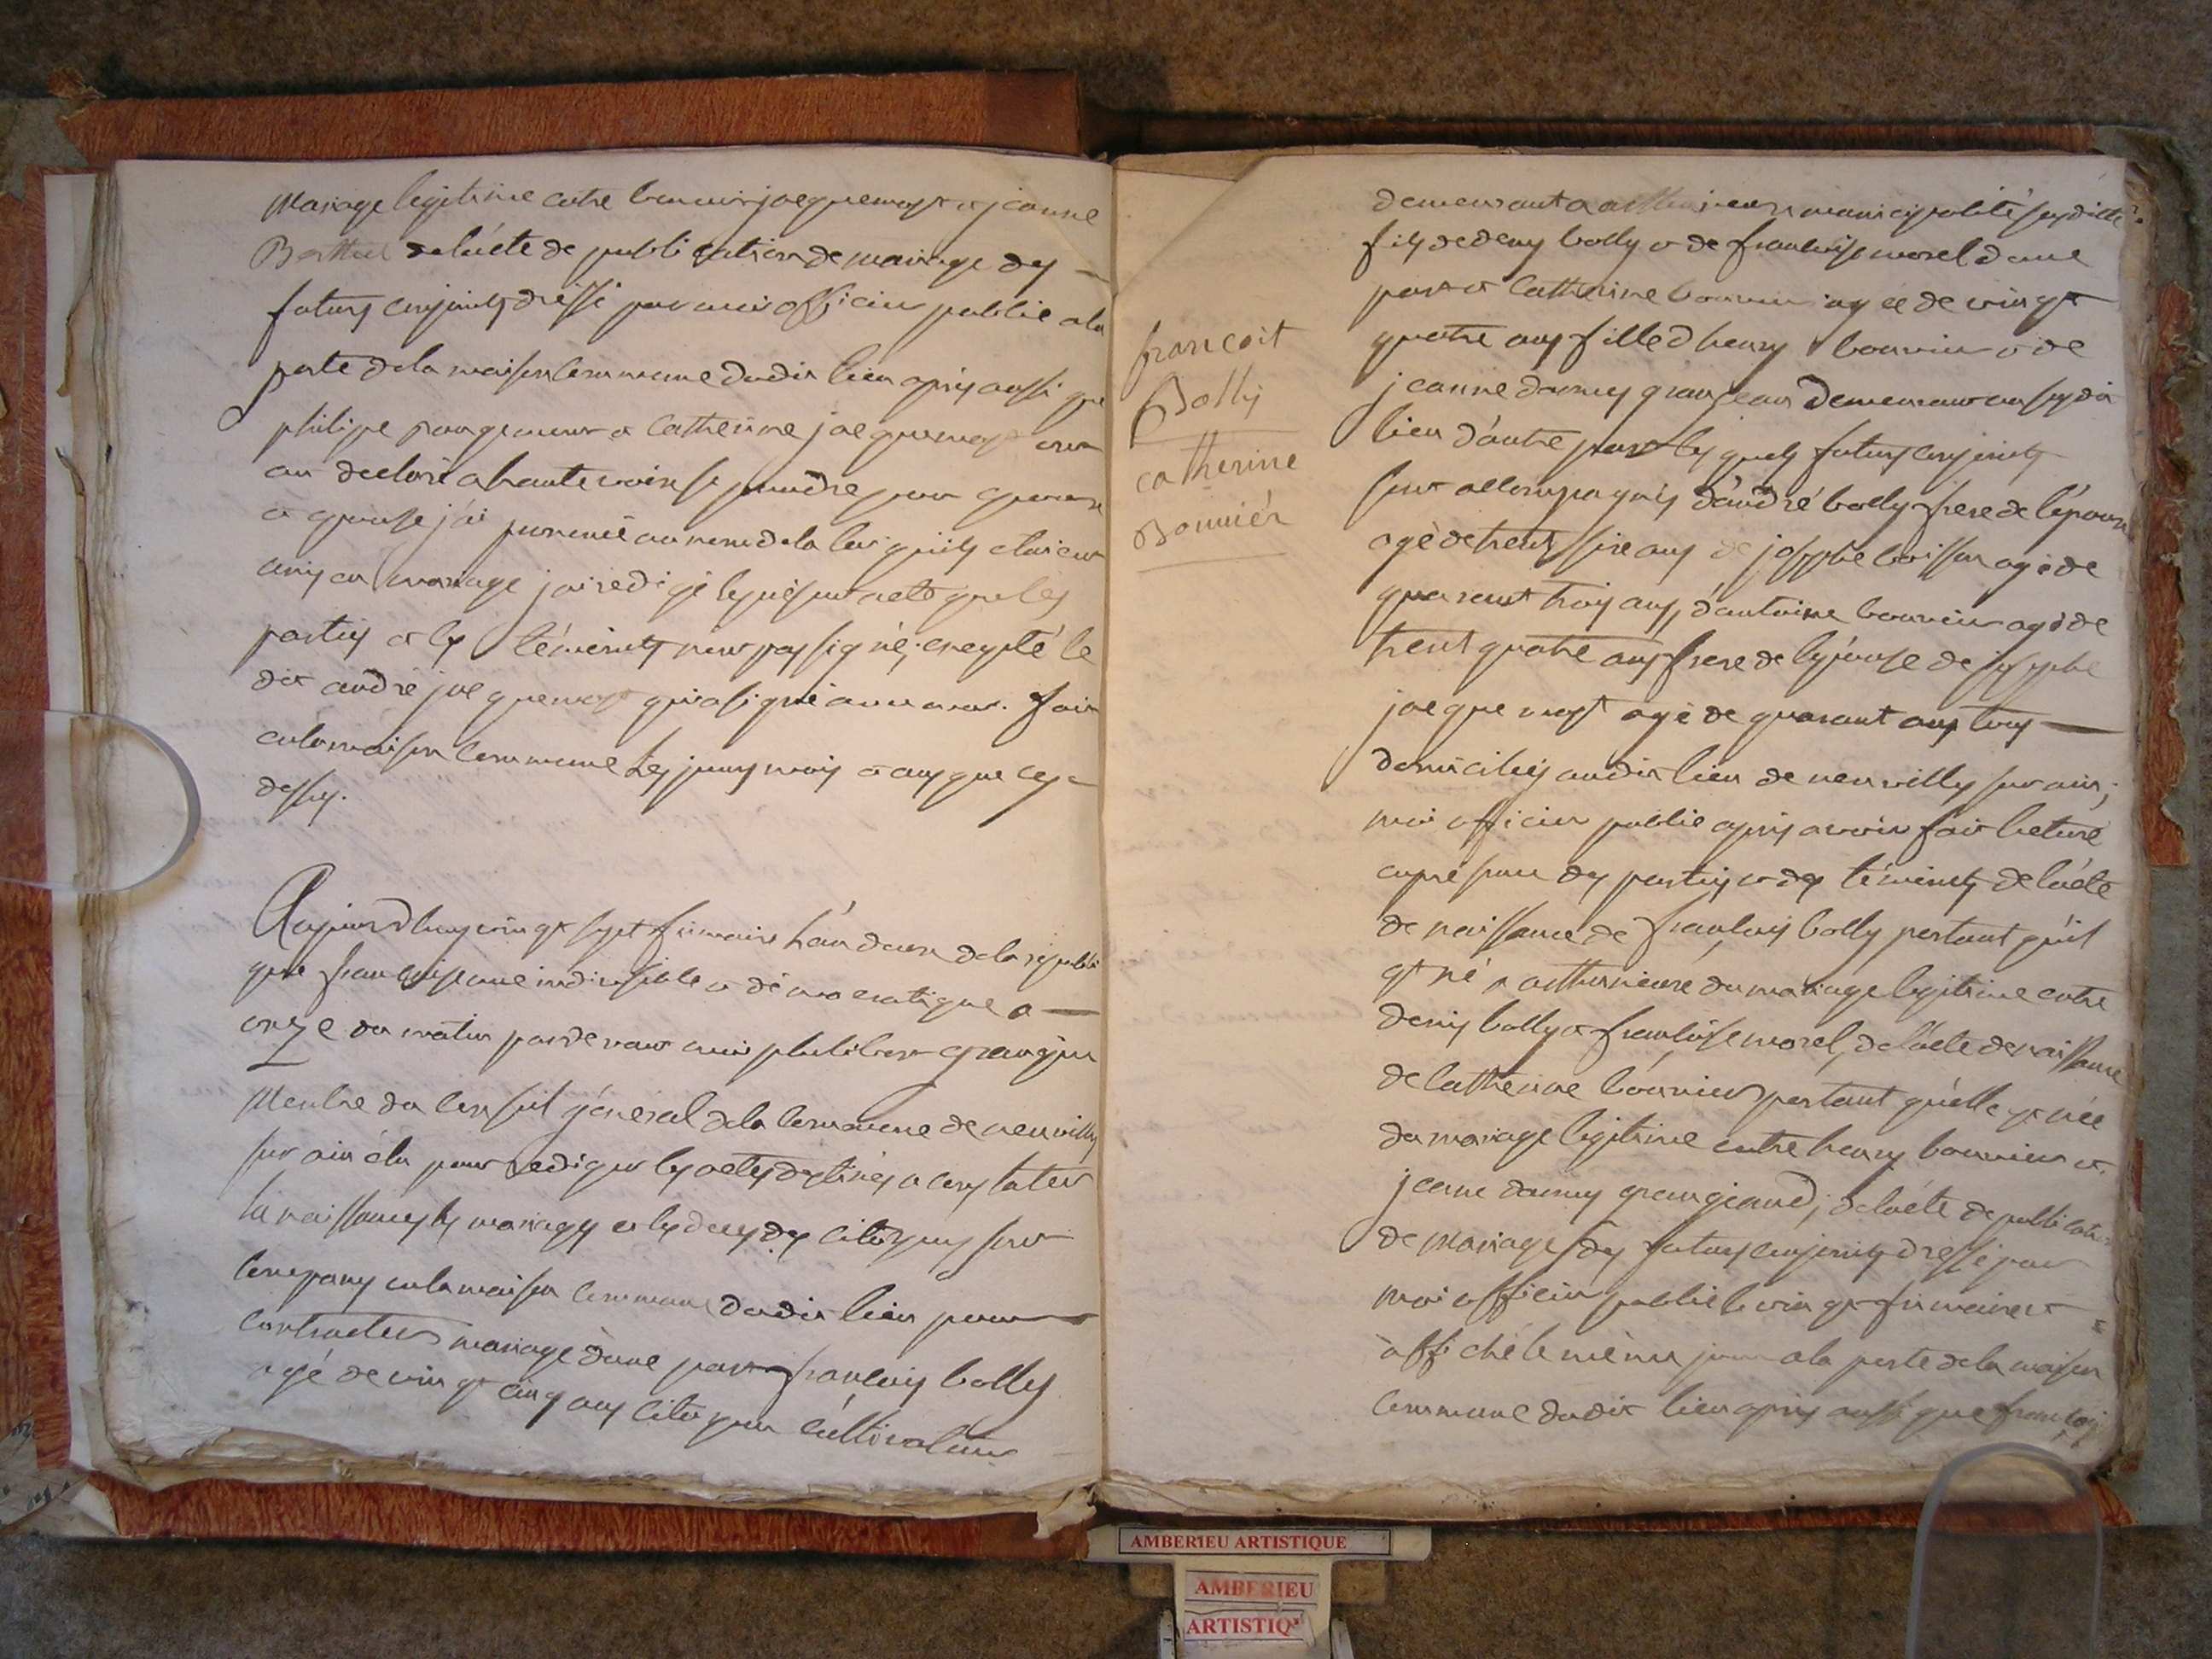 Mariage legitime entre benoit jacquemost et jeanne
Berthet de lácte de publication de mariage des
futurs conjoints dressé par moi officier public a la
porte de la maison commune dudit lieu aprés aussi que
philippe et catherine jacquemost ont
declaré a haute voix se prendre pour epoux
et epouse j'ai prononcé au nom de la loi qu'ils etaient
unis en mariage j'ai redigé le présent acte que les
parties et les témoints n'ont pas signé; excepté le
dit andré jacquemost qui a signé avec moi. fait
en la maison commune les jours mois et ans que ces
dessus.
Aujourdhuy vingt sept frimaire l'an deux de la républi
que francoise une indivisible et démocratique a
onze du matin pardevant moi philibert grangeon
Membre du conseil géneral de la commune de neuville
sur ain élu pour rediger les actes destinés a constater
la naissances les mariages et les deces des citoyens sont
comparus en la maison commune dudit lieu pour
contracter mariage dune part francois bolly
agé de vingt cinq ans citoyen cúltivateur
francoit
Bolly
catherine
Bouuiér
demeurant a municipalité susditte
fils de denis bolly et de francoise morel dune
part et catherine bouuier agée de vingt
quatre ans fille d henry bouuier et de
jeanne grangean demeurant au susdit
lieu d'autre part les quels futurs conjoints
sont accompagnés d'andré bolly frere de l'époux
agé de trente ans de josephe boisson agé de
quarent trois ans, d'antoine bouuier agé de
trent quatre ans frere de l'epouse de josephe
jacquemost agé de quarant ans tous
domiciliés audit lieu de neuvilly sur ain;
moi officier public aprés avoir fait lecture
en présence des parties et des témoints de lácte
de naissance de francois bolly portant qu'il
est né a du mariage legitime entre
denis bolly et francoise morel, de l'acte de naissance
de catherine bouuier portant qu'elle est née
du mariage legitime entre henry bouuier et
jeanne grangeand; de lácte de publication
de mariage des futurs conjoints dressé par
moi officier public le vingt frimaire et
affiché le même jour a la porte de la maison
commune dudit lieu aprés aussi que francois
AMBERIEU ARTISTIQUE
AMBERIEU
ARTISTIQ